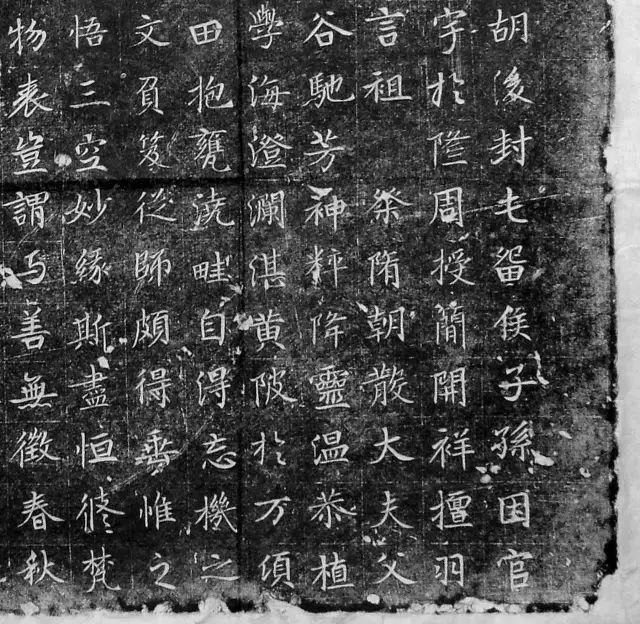 胡後封屯留侯子孫因官
字於隆周授蕳開祥擅羽
言祖 粲隋朝散大夫父
谷馳芳神粹降靈温恭植
學海澄瀾湛黄陂於万頃
田抱甕澆畦自得忘機之
文負笈從師頗得垂惟之
悟三空妙緣斯盡恒修梵
物表豈謂与善無徵春秋